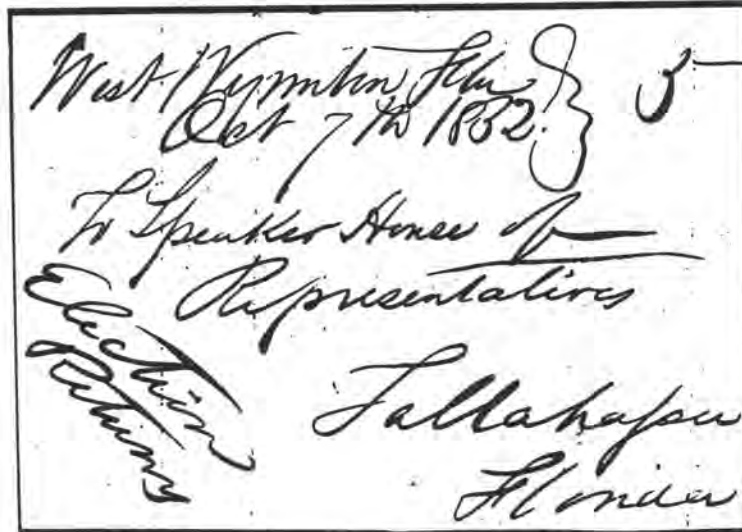 West Wynnton Fla 5
Oct 7th 1852
To Speaker House of
Representatives
Election
Returns
Tallahassee
Florida